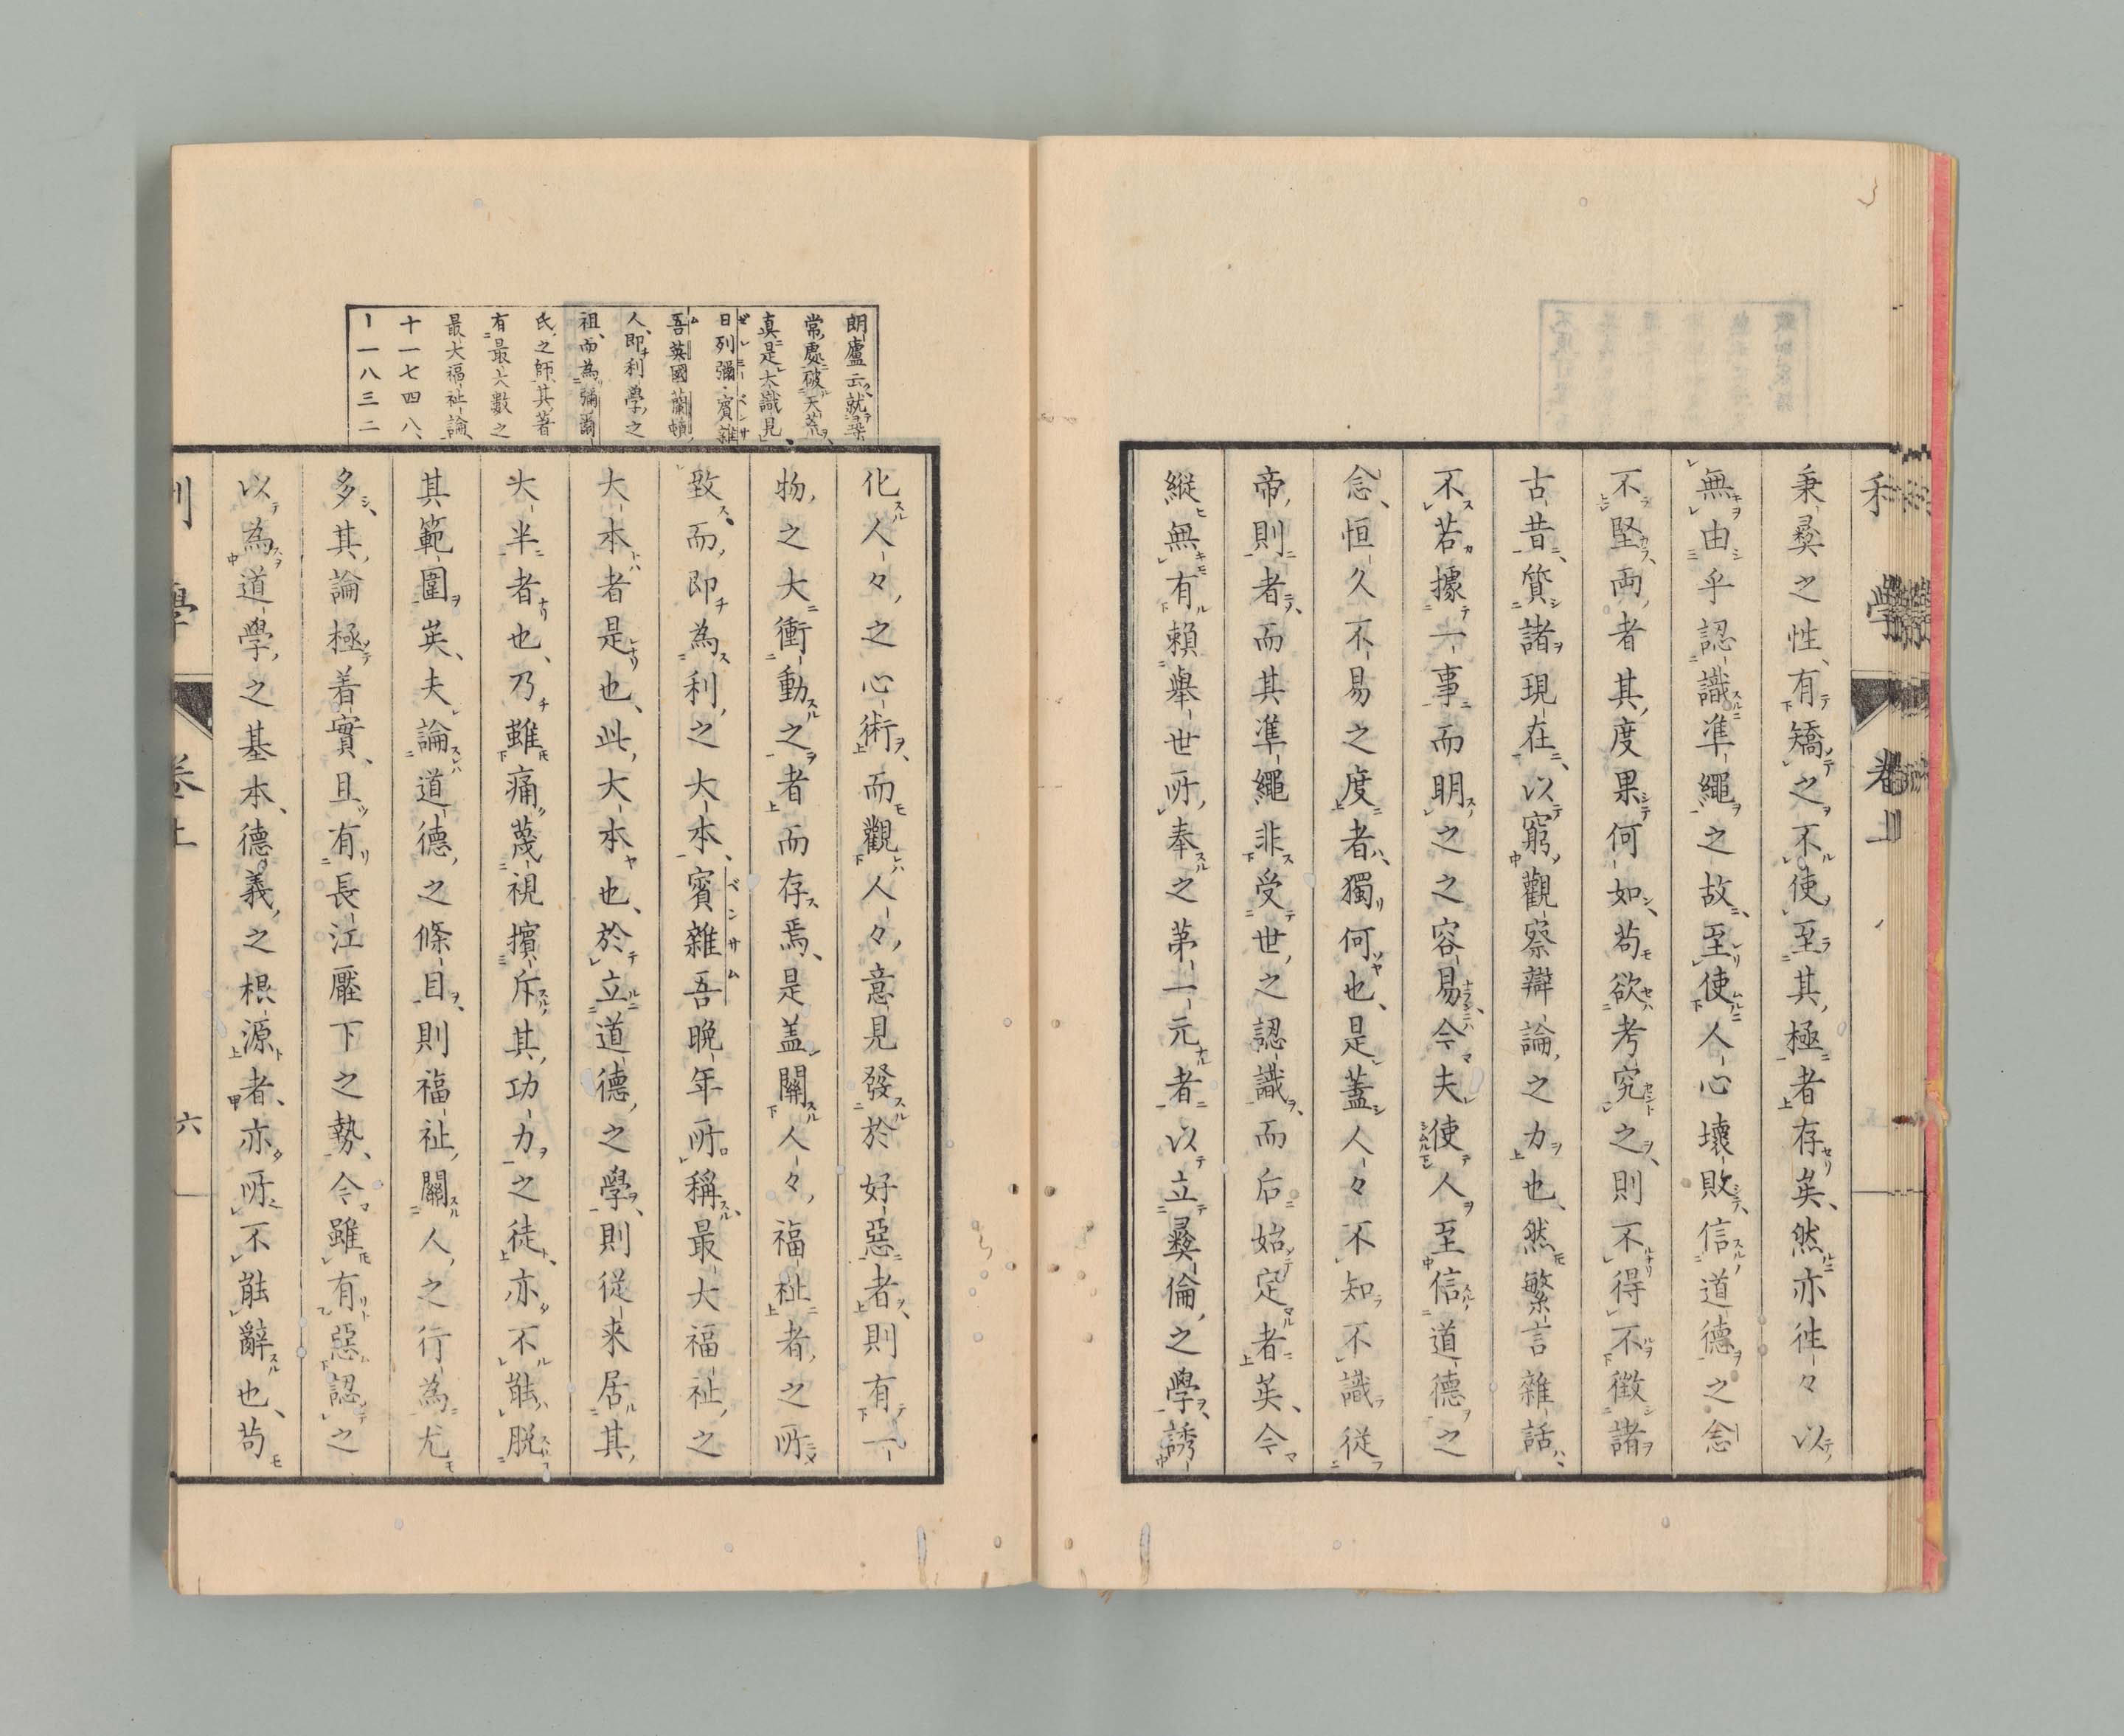 秉彝之性、有矯之不使至其極者存矣、然亦徃々以
無由乎認識準繩之故、至使人心壞敗、信道德之念
不堅、両者其度果何如、苟欲考究之、則不得不徴諸
古昔、質諸現在、以窮觀察辯論之力也、然繁言雜話、
不若據一事而明之之容易、今夫使人至信道德之
念、恒久不易之度者、獨何也、是蓋人々不知不識従
帝則者、而其準繩非受世之認識、而后始定者矣、今
縦無有頼擧世所奉之第一元者以立彝倫之學、誘
朗盧云就栄
常處破天荒、
真是大識見、
日列彌・賓雜
吾英國蘭頓
人、即利學之
祖、而為彌爾
氏之師、其著
有最大數之
最大福祉論、
十一七四八、
ー一八三二
化人々之心術、而觀人々意見發於好惡者、則有一
物之大衝動之者而存焉、是盖關人々福祉者之所
致、而即為利之大本、賓雜吾晩年所稱最大福祉之
大本者是也、此大本也、於立道德之學、則従来居其
大半者也、乃雖痛蔑視擯斥其功力之徒、亦不能脱
其範圍矣、夫論道德之條目、則福祉關人之行為尤
多、其論極着實、且有長江壓下之勢、今雖有惡認之
以為道學之基本、德義之根源者、亦所不能辭也、苟
利學
卷上
六